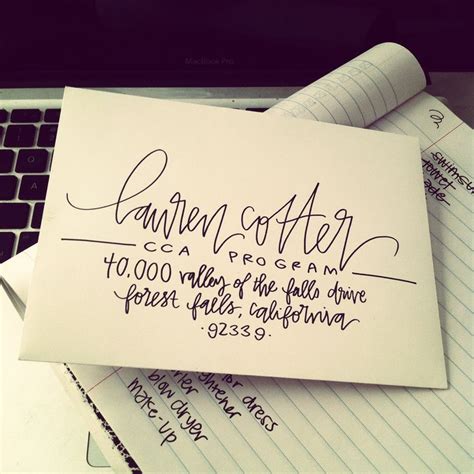 MacBook Pro
lauren cotter
CCA PROGRAM
40,000 valley of the falls drive
forest falls, california
·92339·
swimsuit
towel
dress
blow dryer
make-up